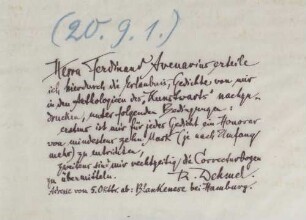 (20. 9. 1.)
Herrn Ferdinand Avenarius erteile
ich hierdurch die Erlaubnis, Gedichte von mir
in den Anthologieen des „Kunstwarts" nachzu-
drucken, unter folgenden Bedingungen:
erstens ist mir für jedes Gedicht ein Honorar
von mindestens zehn Mark (je nach Umfang
mehr) zu entrichten,
zweitens sind mir rechtzeitig die Correcturbogen
zu übermitteln.
R. Dehmel.
Adresse vom 5. Oktbr. ab: Blankenese bei Hamburg.